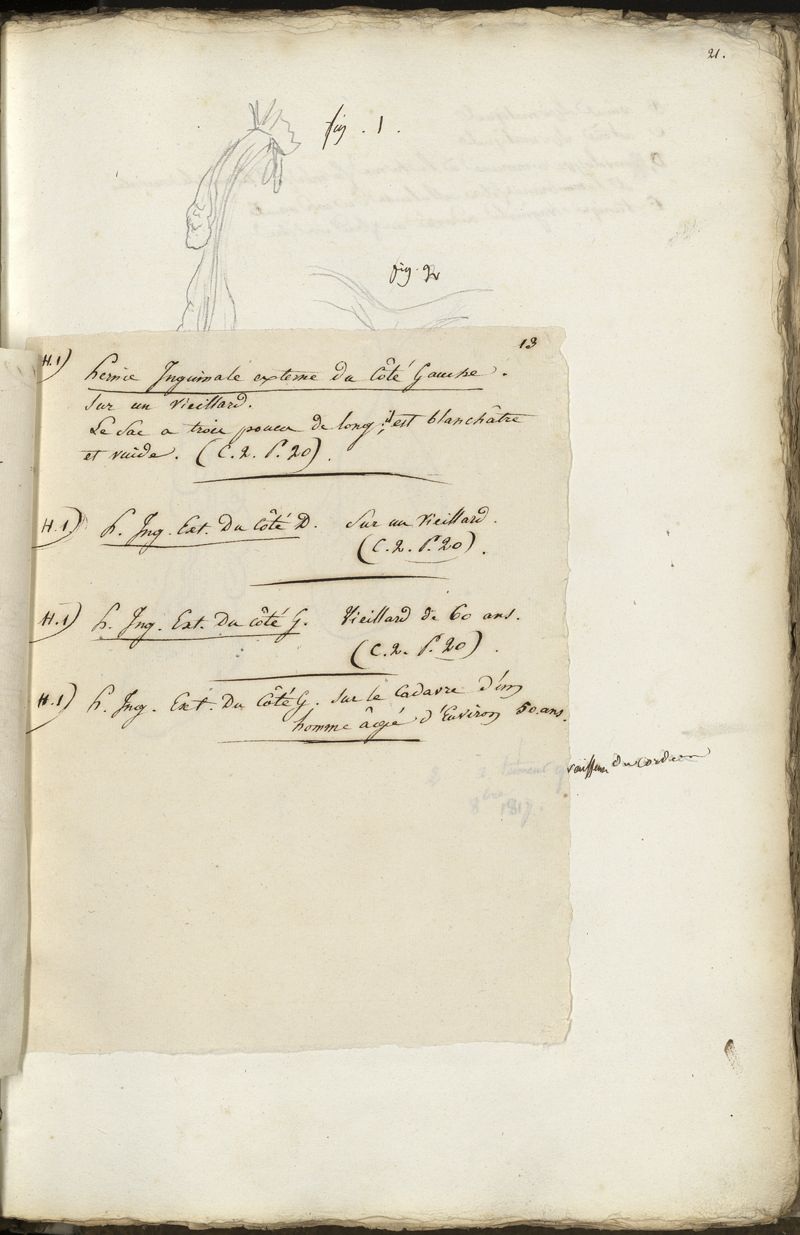 21.
fig. 1.
fig. 2
13
H.1) hernie Inguinale externe du Côté Gauche.
sur un vieillard.
Le Sac a trois pouces de long; il est blanchâtre
et vuide. (C.2. P.20).
H.1) h. Ing. Ext. Du Côté D. Sur un Vieillard.
(C.2. P.20).
H.1) h. Ing. Ext. Du côté G. Vieillard de 60 ans.
(C.2. P.20).
H.1) h. Ing. Ext. Du Côté G. Sur le Cadavre d'un
homme âgé d'Environ 50 ans.
vaisseau du cordon
8bre 1817.